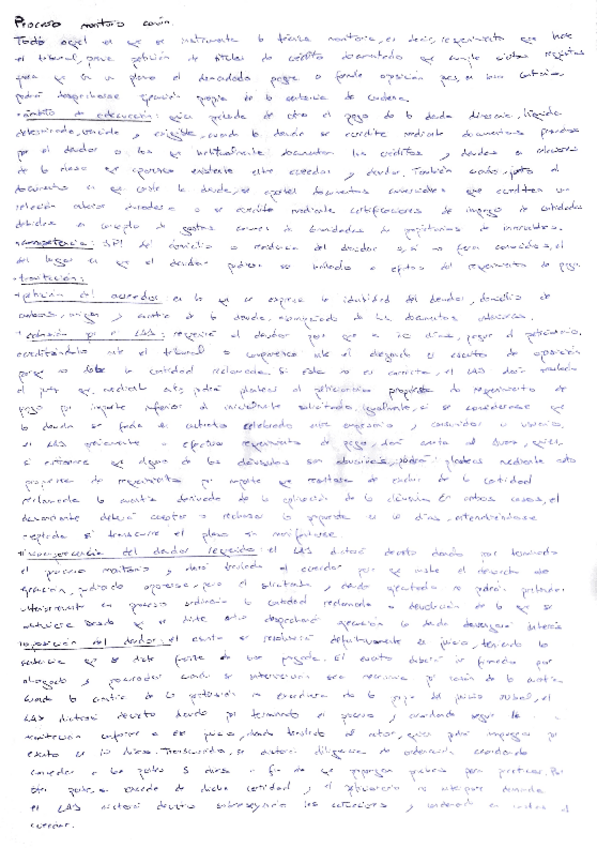 Proceso monitorio común
Todo aquel en que se instrumenta la técnica monitoria, es decir, requerimiento que hace
el tribunal, previa petición de títulos de crédito documentado que cumple ciertos requisitos
para que en un plazo el demandado pague o formule oposición pues, en caso contrario
podrá despacharse ejecución propia de la sentencia de condena.
· ámbito de adecuación: quien pretenda de otro el pago de la deuda dineraria, líquida
determinada, vencida y exigible, cuando la deuda se acredite mediante documentos
por el deudor o los que habitualmente documentan los créditos y deudas en relaciones
de la clase que aparezca existente entre acreedor y deudor. También cuando, junto al
documento en que conste la deuda, se aporten documentos comerciales que acrediten una
relación anterior duradera o se acredite mediante certificaciones de impago de cantidades
debidas en concepto de gastos comunes de comunidades de propietarios de inmuebles.
· competencia: JPI del domicilio o residencia del deudor o, si no fueran conocidos, el
del lugar en que el deudor pudiera ser hallado a efectos del requerimiento de pago.
· tramitación:
· petición del acreedor: en la que se exprese la identidad del deudor, domicilio de
ambos, origen y cuantía de la deuda, acompañado de los documentos
· admisión por el LAJ: requerirá al deudor para que en 20 días, pague al peticionario,
acreditándolo ante el tribunal o comparezca ante él alegando en escrito de oposición
porque no debe la cantidad reclamada. Si ésta no es correcta, el LAJ dará traslado
al juez que, mediante auto, podrá plantear al peticionario propuesta de requerimiento de
pago por importe inferior al inicialmente solicitado. Igualmente, si se considerase que
la deuda se funda en contrato celebrado entre empresario y consumidor o usuario,
el LAJ previamente a efectuar requerimiento de pago, dará cuenta al Juez, quien,
si estimare que alguna de las cláusulas son abusivas, podrá plantear mediante auto
propuesta de requerimiento por importe que resultara de excluir de la cantidad
reclamada la cuantía derivada de la aplicación de la cláusula. En ambos casos, el
demandante deberá aceptar o rechazar la propuesta en 10 días, entendiéndose
si transcurre el plazo sin manifestarse.
· incomparecencia del deudor requerido: el LAJ dictará decreto dando por terminado
el proceso monitorio y dará traslado al acreedor para que inste el despacho de
ejecución, pudiendo oponerse, pero el solicitante y deudor ejecutado no podrán pretender
ulteriormente en proceso ordinario la cantidad reclamada o devolución de la que se
obtuviere. Desde que se dicte auto despachando ejecución la deuda devengará interés
· oposición del deudor: el asunto se resolverá definitivamente en juicio, teniendo la
sentencia que se dicte fuerza de cosa juzgada. El escrito deberá ir firmado por
abogado y procurador cuando su intervención sea necesaria por razón de la cuantía.
Cuando la cuantía de la pretensión no excediera de la propia del juicio verbal, el
LAJ dictará decreto dando por terminado el proceso y acordando seguir la
tramitación conforme a este juicio, dando traslado al actor, quien podrá impugnar por
escrito en 10 días. Transcurridos, se dictará diligencia de ordenación acordando
conceder a las partes 5 días a fin de que propongan prueba para practicar. Por
otra parte, si excede de dicha cantidad y el peticionario no interpone demanda
el LAJ dictará decreto sobreseyendo las actuaciones y condenando en costas al
acreedor.